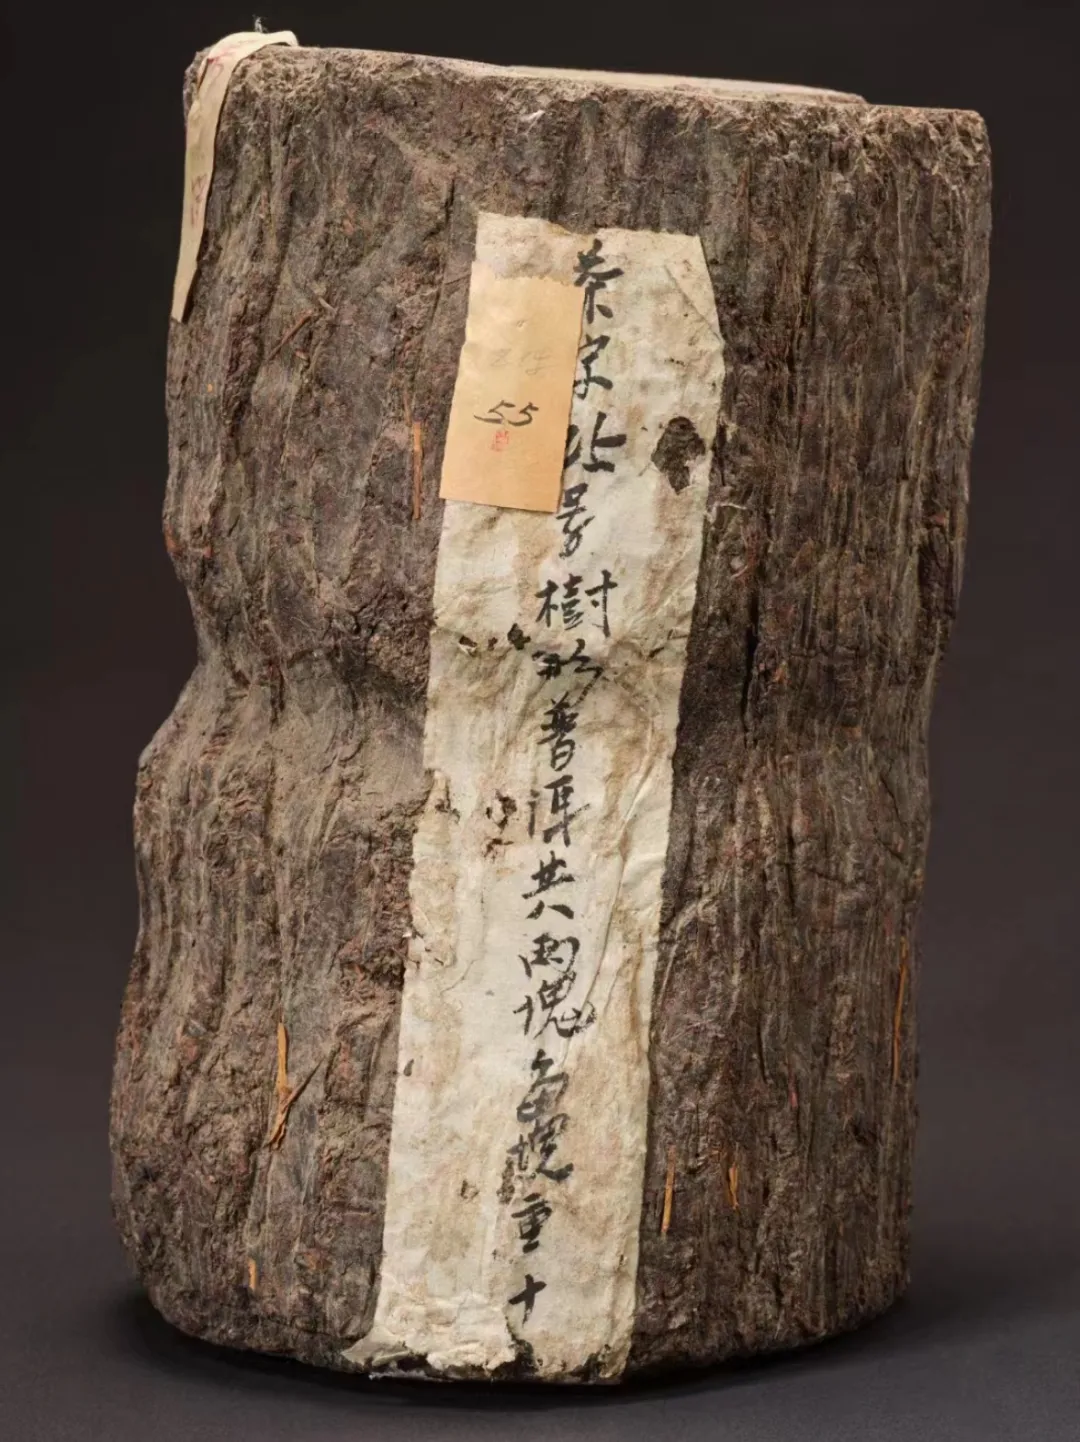 茶字号樹形普洱共兩塊每塊重十
55